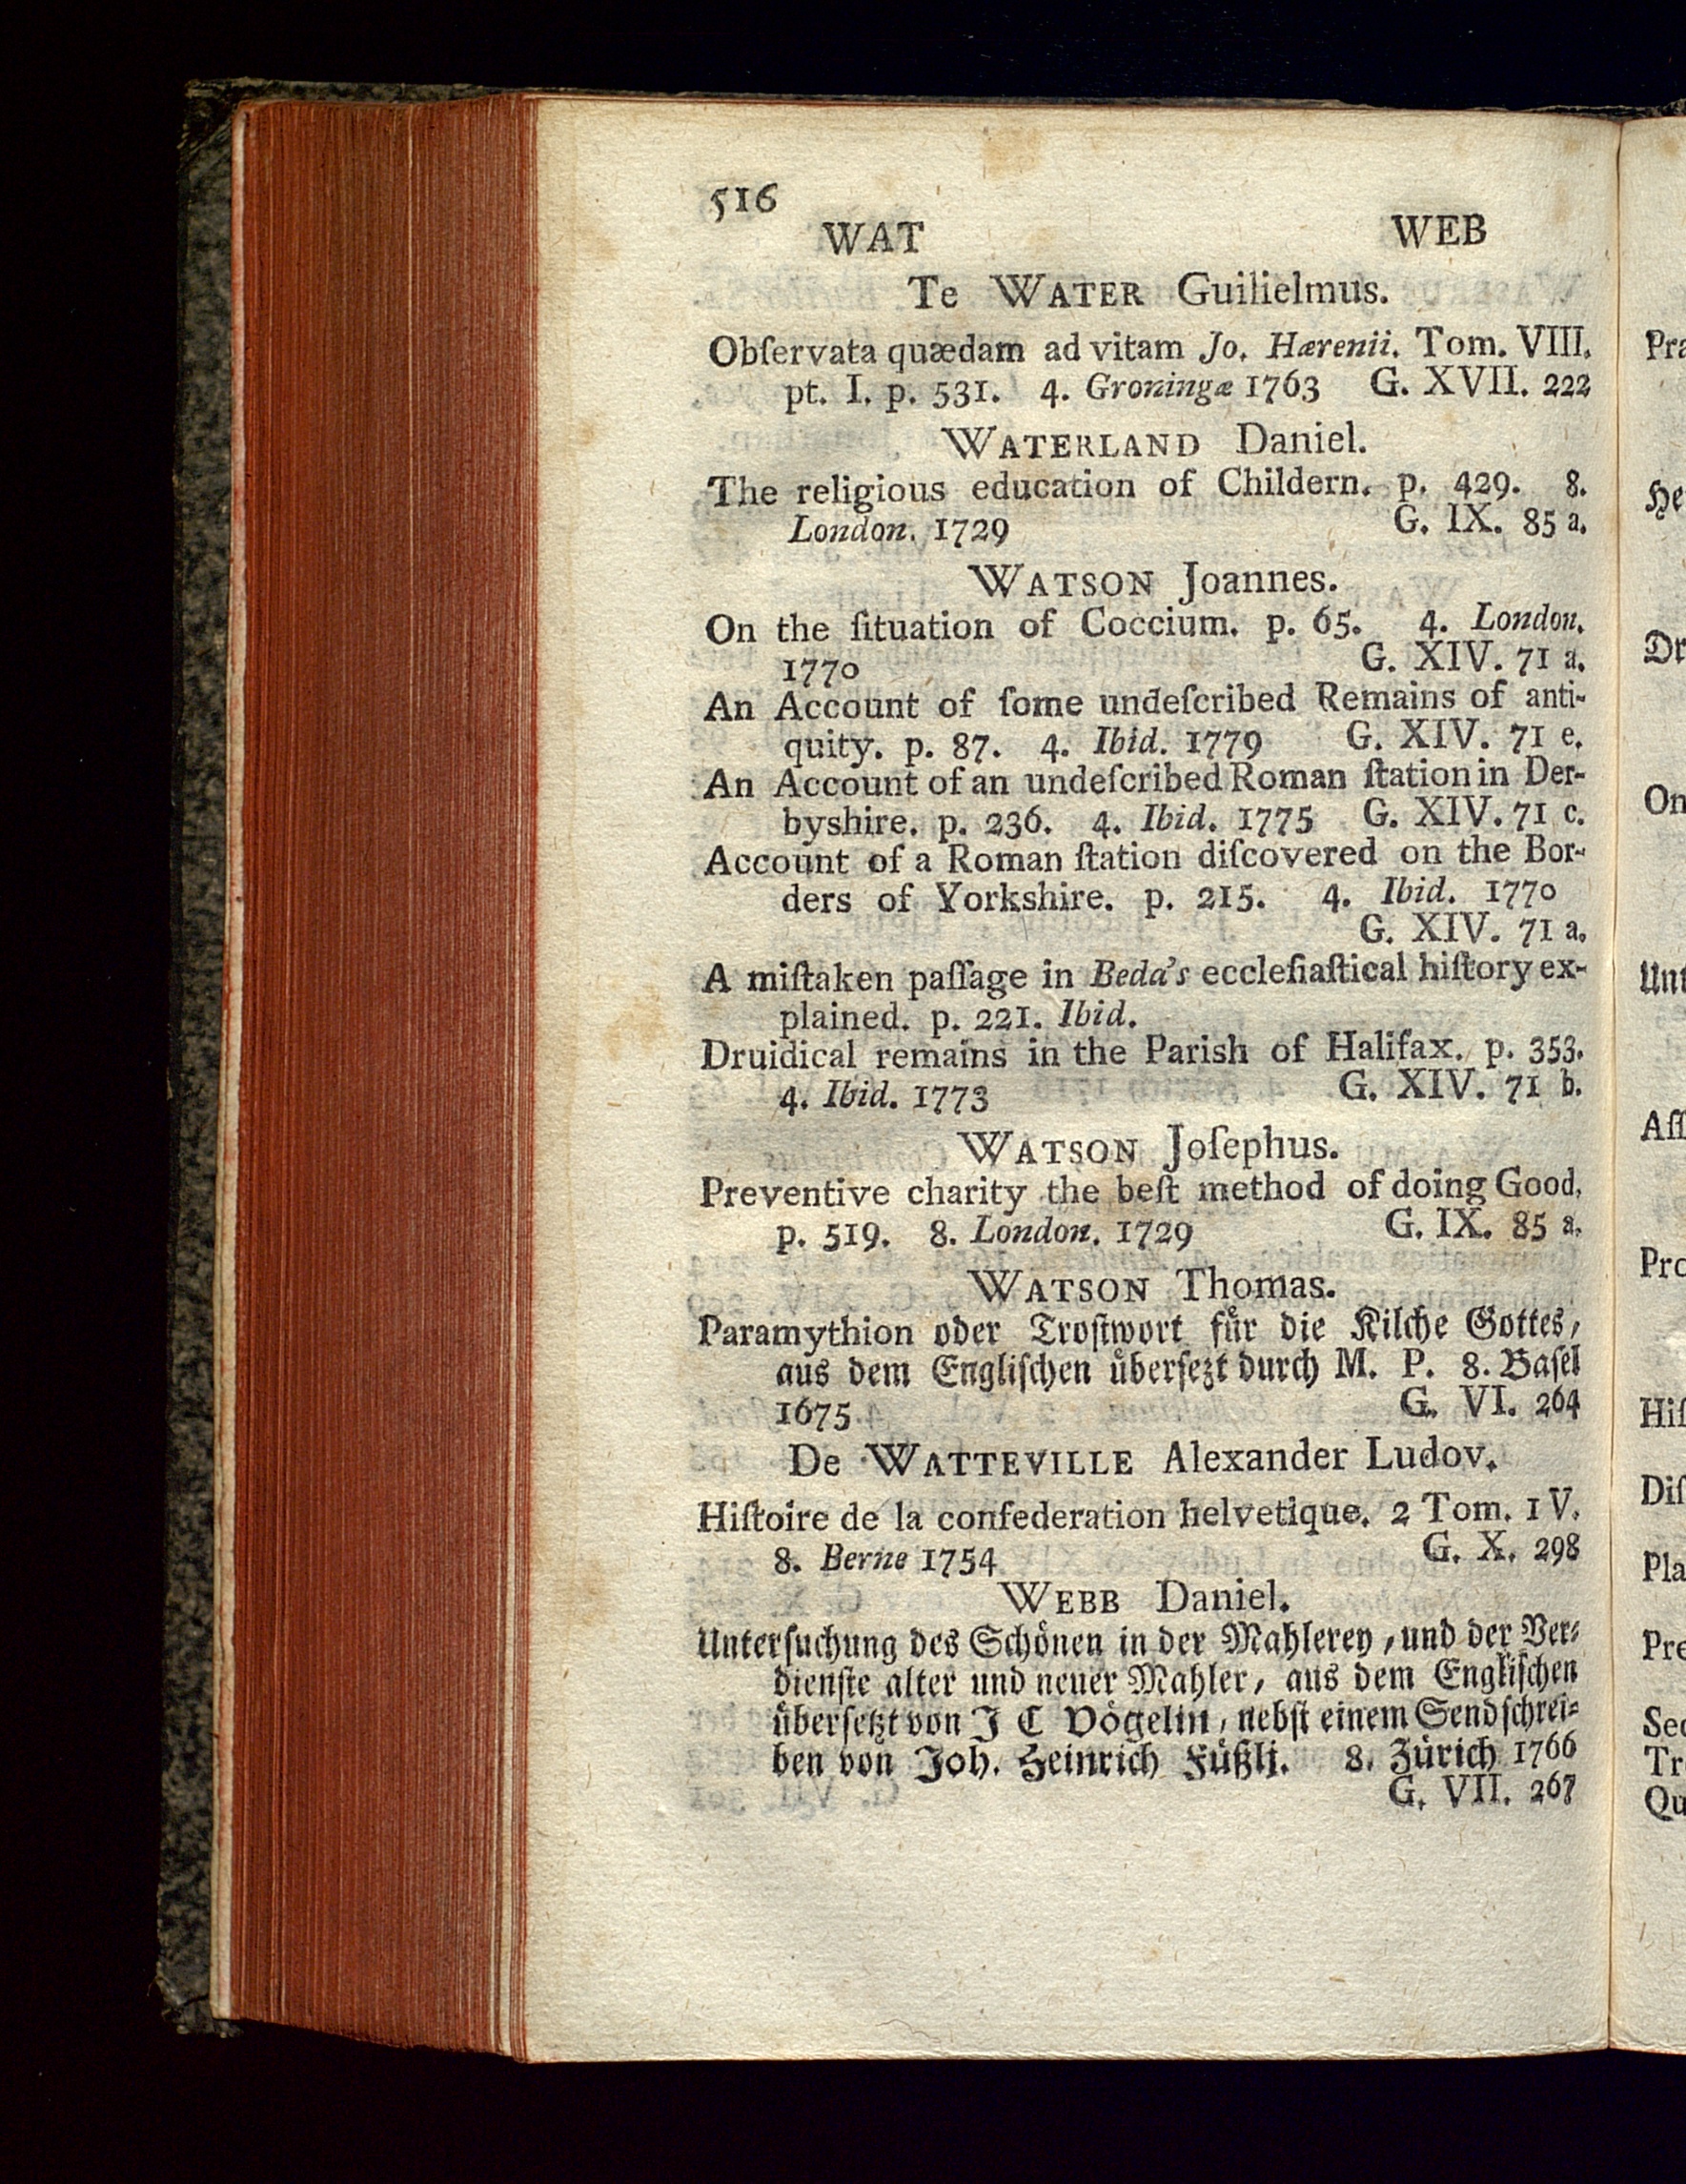 516
WAT WEB
Te WATER Guilielmus.
Obſervata quædam ad vitam Jo. Hærenii. Tom. VIII.
pt. I. p. 531. 4. Groningæ 1763 G. XVII. 222
WATERLAND Daniel.
The religious education of Childern. p. 429. 8.
London. 1729 G. IX. 85 a.
WATSON Joannes.
On the ſituation of Coccium. p. 65. 4. London.
1770 G. XIV. 71 a.
An Account of ſome undeſcribed Remains of anti-
quity. p. 87. 4. Ibid. 1779 G. XIV. 71 e.
An Account of an undeſcribed Roman ſtation in Der-
byshire. p. 236. 4. Ibid. 1775 G. XIV. 71 c.
Account of a Roman ſtation diſcovered on the Bor-
ders of Yorkshire. p. 215. 4. Ibid. 1770
G. XIV. 71 a.
A miſtaken paſſage in Beda's eccleſiaſtical hiſtory ex-
plained. p. 221. Ibid.
Druidical remains in the Parish of Halifax. p. 353.
4. Ibid. 1773 G. XIV. 71 b.
WATSON Joſephus.
Preventive charity the beſt method of doing Good.
p. 519. 8. London. 1729 G. IX. 85 a.
WATSON Thomas.
Paramythion oder Troſtwort fuͤr die Kilche Gottes,
aus dem Engliſchen uͤberſezt durch M. P. 8. Baſel
1675 G. VI. 264
De WATTEVILLE Alexander Ludov.
Hiſtoire de la confederation helvetique. 2 Tom. 1 V.
8. Berne 1754 G. X. 298
WEBB Daniel.
Unterſuchung des Schoͤnen in der Mahlerey, und der Ver-
dienſte alter und neuer Mahler, aus dem Engliſchen
uͤberſetzt von J C Voͤgelin, nebſt einem Sendſchrei-
ben von Joh. Heinrich Fuͤßli. 8. Zuͤrich 1766
G. VII. 267
Pra
He
Dr
On
Unt
Aſſ
Pro
Hiſ
Diſ
Pla
Pre
Sec
Tr
Qu